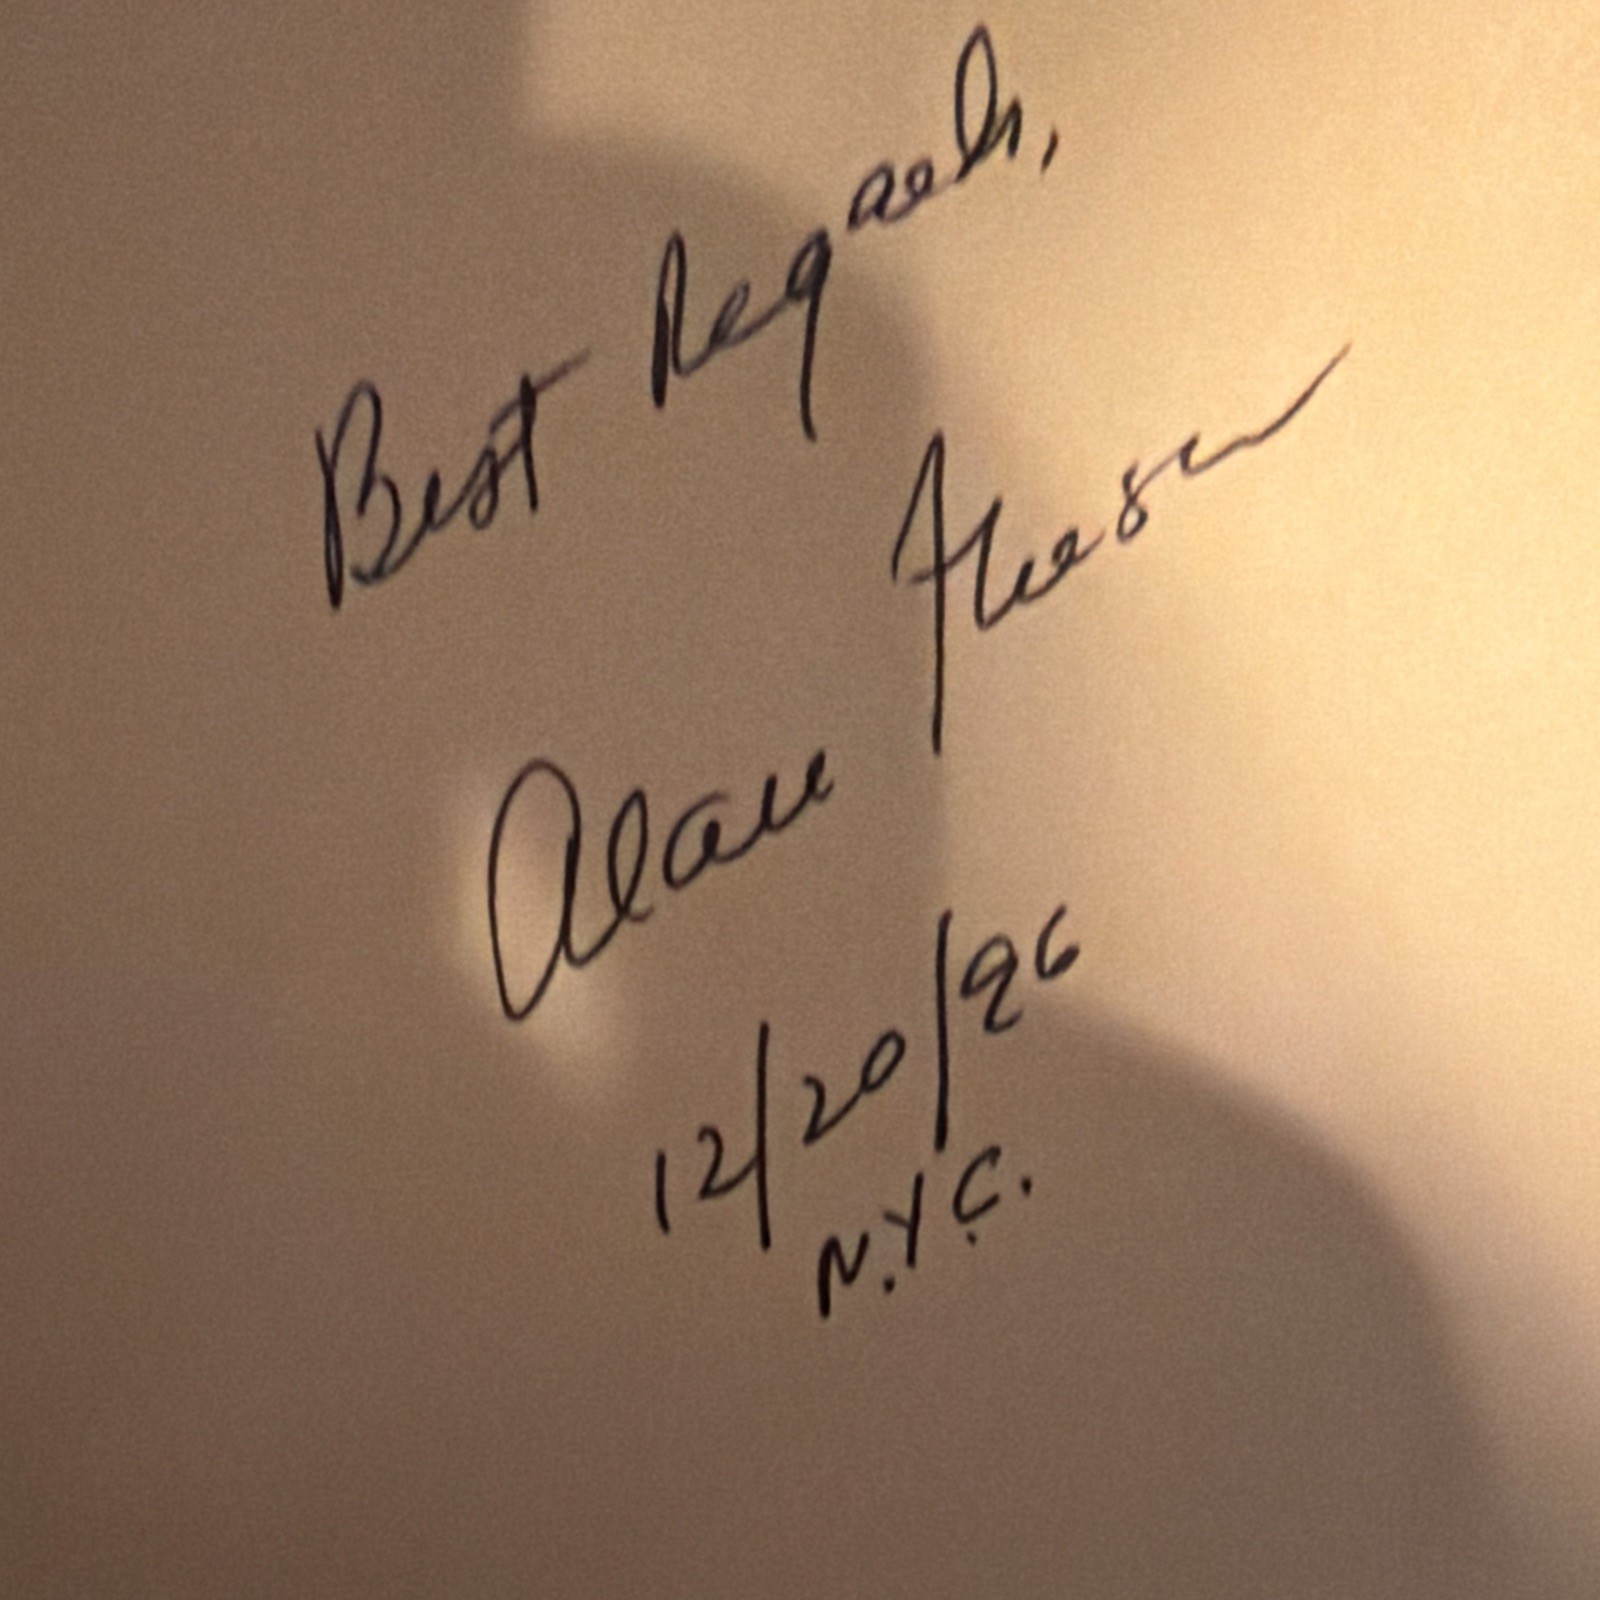 Best Regards,
Alan
12/20/96
N.Y.C.